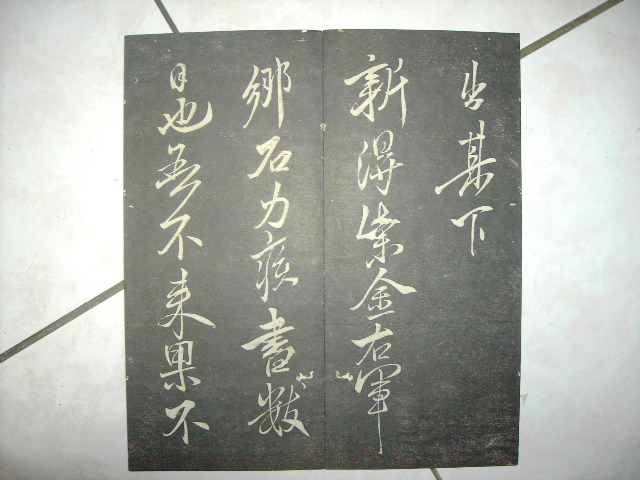 出其下
新得紫金右軍
鄉石力疾書數
日也吾不來果不